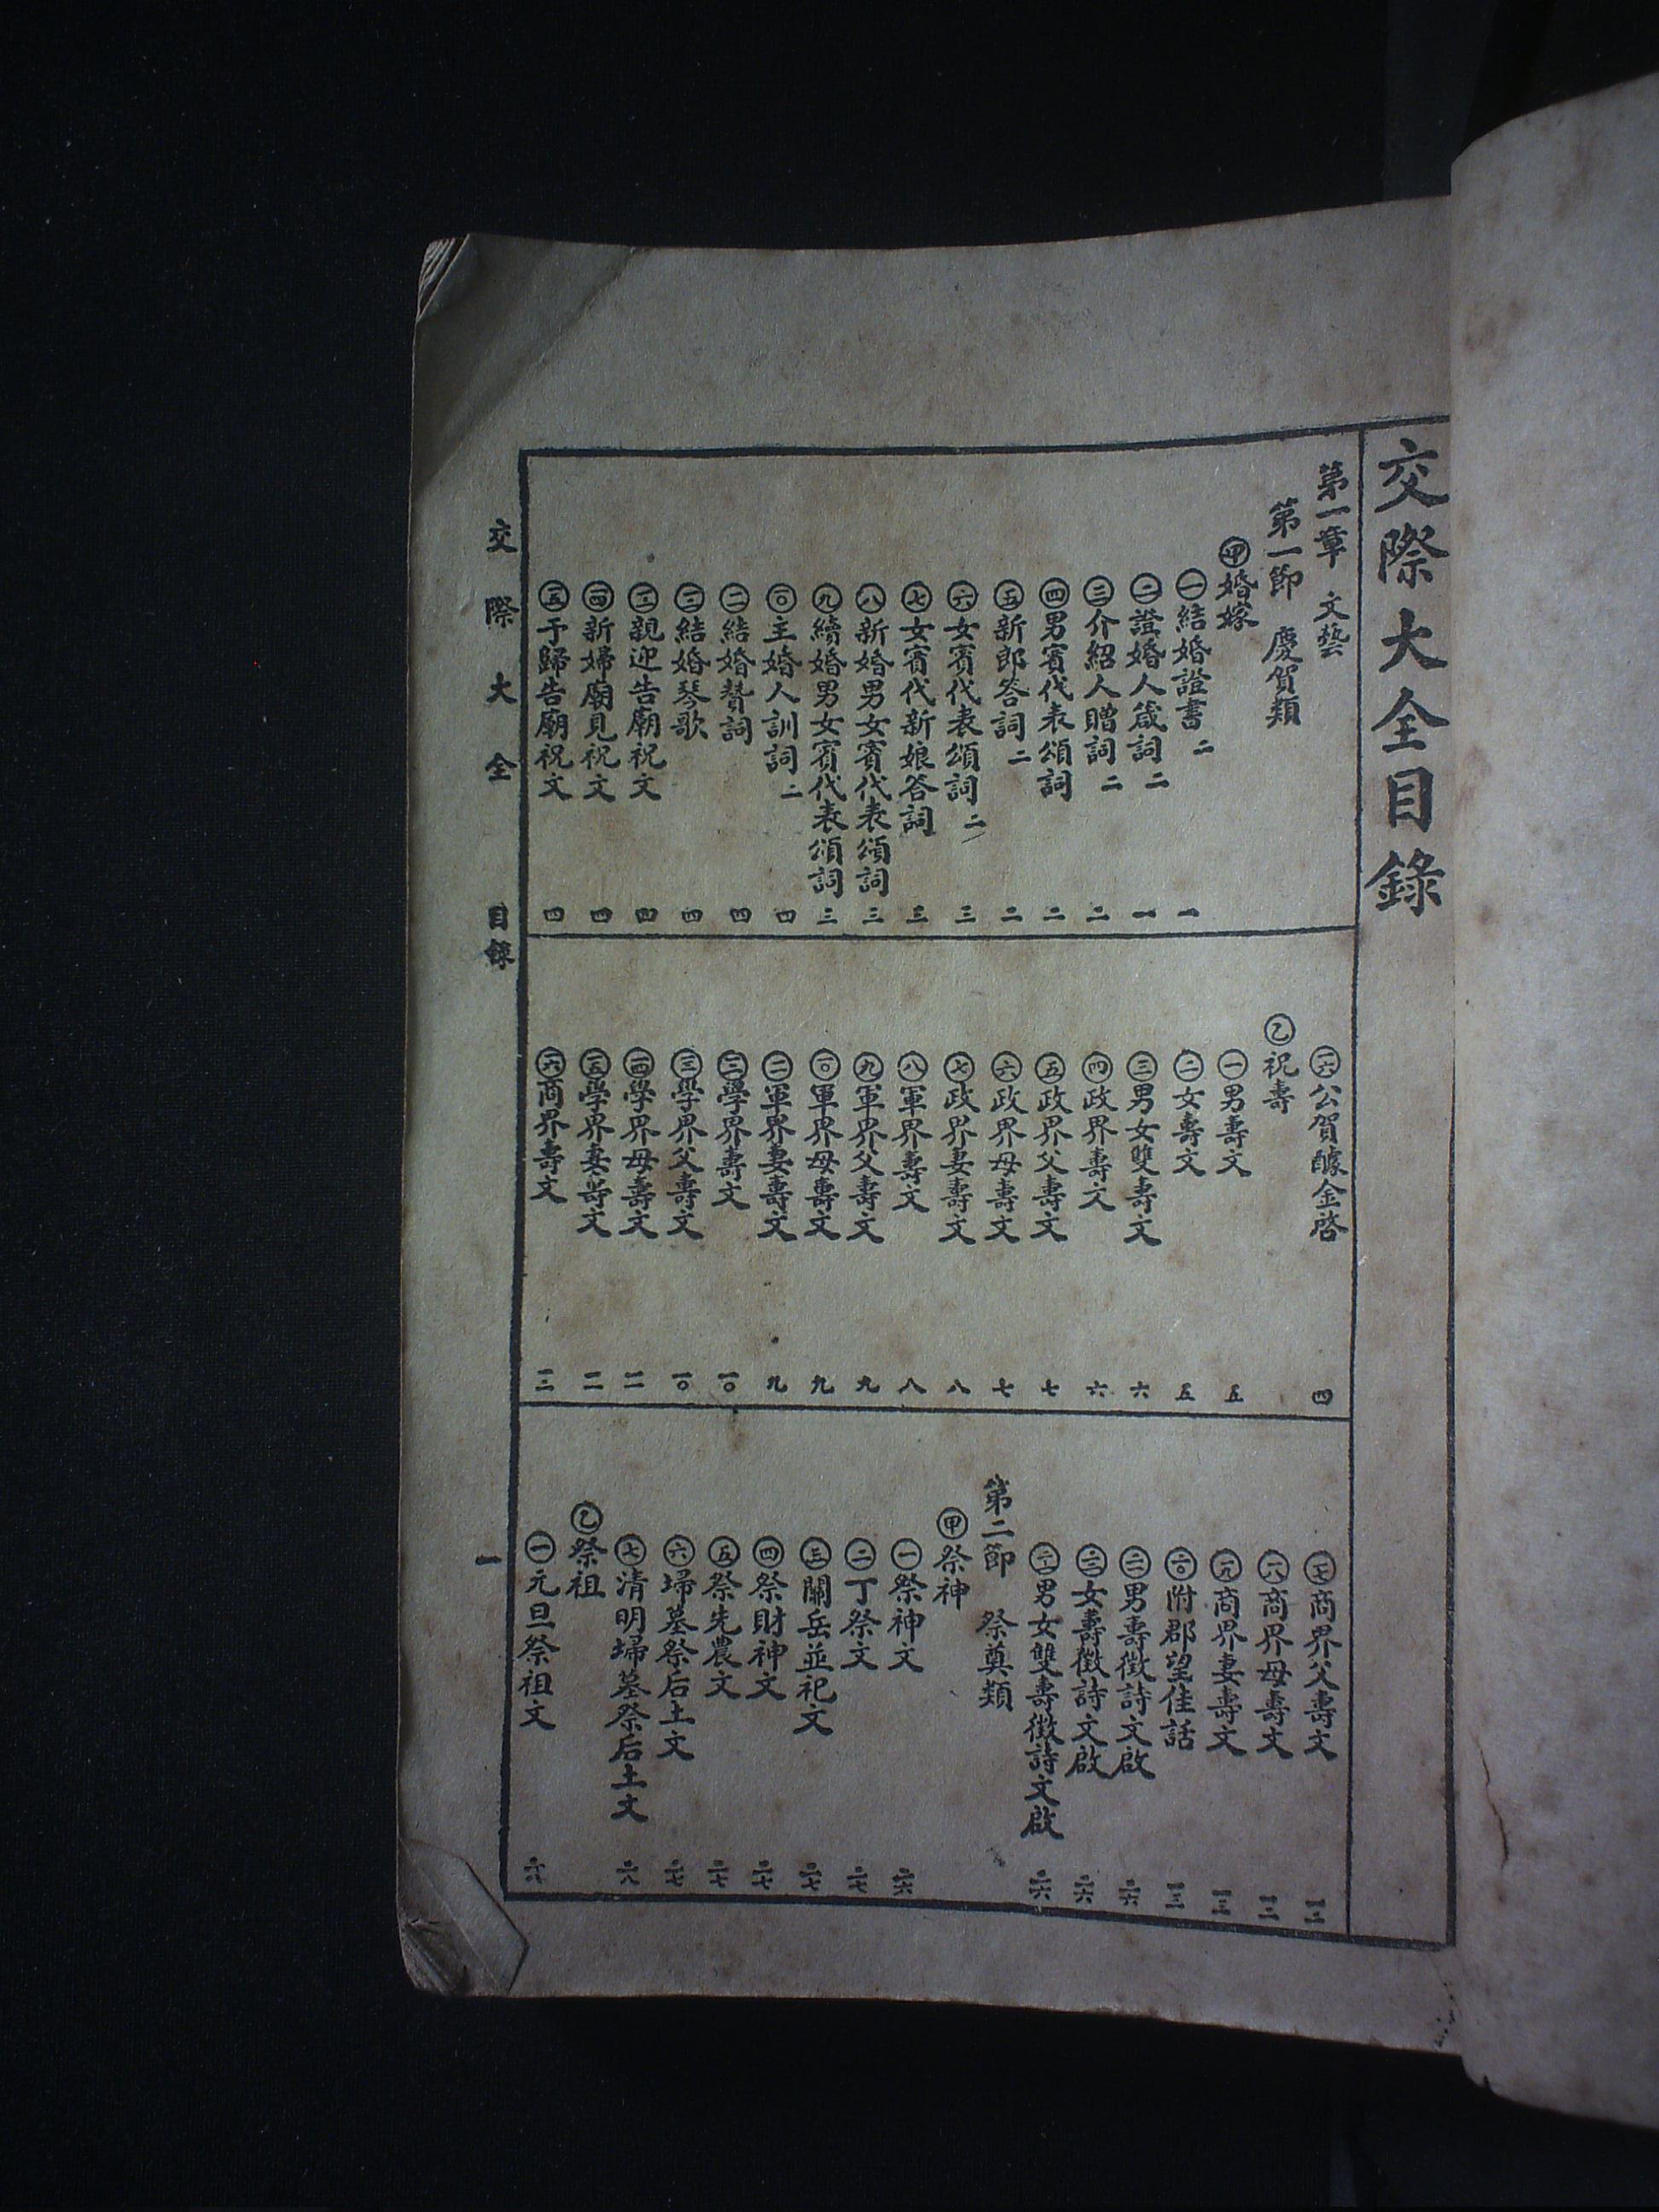 交際大全目錄
第一章 文藝
第一節 慶賀類
㊙甲婚嫁
㊀結婚證書二 一
㊁證婚人箴詞二 一
㊂介紹人贈詞二 二
㊃男賓代表頌詞 二
㊄新郎答詞二 二
㊅女賓代表頌詞二 三
㊆女賓代新娘答詞 三
㊇新婚男女賓代表頌詞 三
㊈續婚男女賓代表頌詞 三
一〇主婚人訓詞二 四
一一結婚贊詞 四
一二結婚琴歌 四
一三親迎告廟祝文 四
一四新婦廟見祝文 四
一五于歸告廟祝文 四
一六公賀醵金啓 四
乙祝壽
㊀男壽文 五
㊁女壽文 五
㊂男女雙壽文 六
㊃政界壽文 六
㊄政界父壽文 七
㊅政界母壽文 七
㊆政界妻壽文 八
㊇軍界壽文 八
㊈軍界父壽文 九
一〇軍界母壽文 九
一一軍界妻壽文 九
一二學界壽文 一〇
一三學界父壽文 一〇
一四學界母壽文 一一
一五學界妻壽文 一一
一六商界壽文 一二
一七商界父壽文 一二
一八商界母壽文 一二
一九商界妻壽文 一三
二〇附郡望佳話 一三
二一男壽徵詩文啟 二六
二二女壽徵詩文啟 二六
二三男女雙壽徵詩文啟 二六
第二節 祭奠類
甲祭神
㊀祭神文 二六
㊁丁祭文 二七
㊂關岳並祀文 二七
㊃祭財神文 二七
㊄祭先農文 二七
㊅埽墓祭后土文 二七
㊆清明埽墓祭后土文 二八
乙祭祖
㊀元旦祭祖文
交際大全 目錄 一